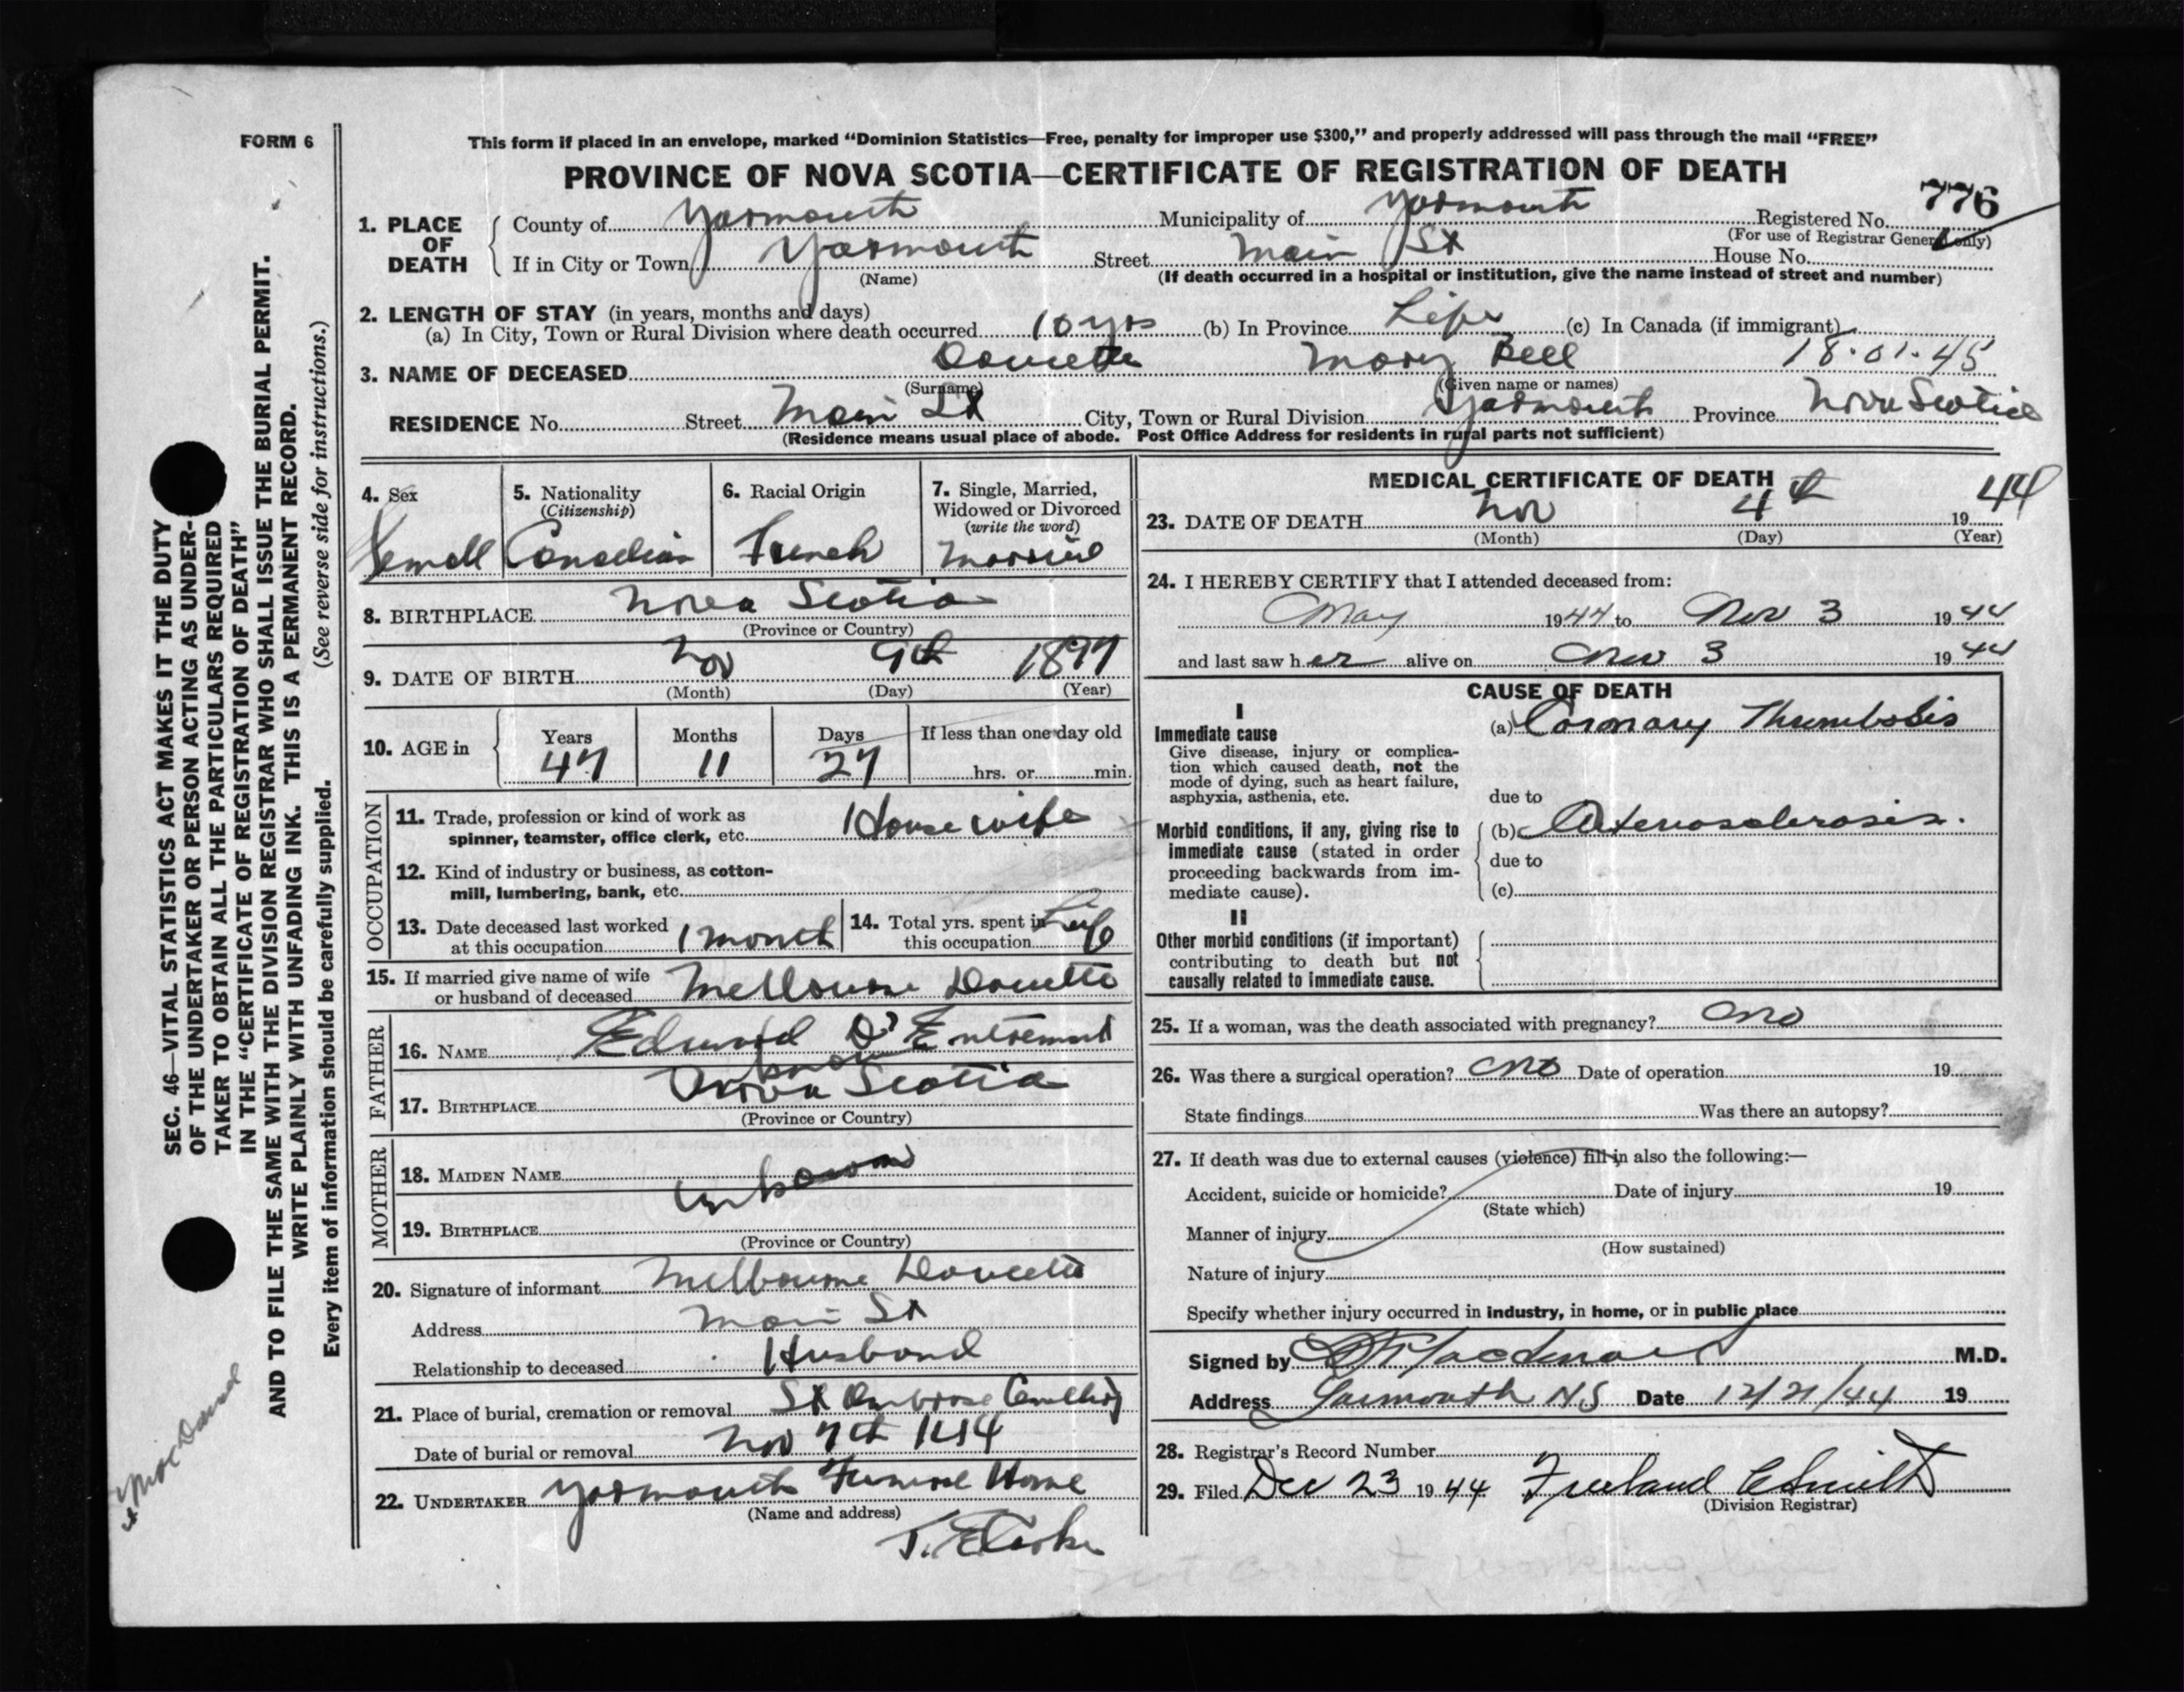 FORM 6
This form if placed in an envelope, marked “Dominion Statistics—Free, penalty for improper use $300,” and properly addressed will pass through the mail “FREE”
PROVINCE OF NOVA SCOTIA—CERTIFICATE OF REGISTRATION OF DEATH
776
1. PLACE OF DEATH County of Yarmouth Municipality of Yarmouth Registered No.
(For use of Registrar General only)
If in City or Town Yarmouth Street Main St House No.
(Name) (If death occurred in a hospital or institution, give the name instead of street and number)
2. LENGTH OF STAY (in years, months and days)
(a) In City, Town or Rural Division where death occurred 10 yrs (b) In Province Life (c) In Canada (if immigrant)
3. NAME OF DECEASED Doucette Mary Bell 18·01·45
(Surname) (Given name or names)
RESIDENCE No. Street Main St City, Town or Rural Division Yarmouth Province Nova Scotia
(Residence means usual place of abode. Post Office Address for residents in rural parts not sufficient)
4. Sex Femall
5. Nationality (Citizenship) Canadian
6. Racial Origin French
7. Single, Married, Widowed or Divorced (write the word) Married
8. BIRTHPLACE Nova Scotia
(Province or Country)
9. DATE OF BIRTH Nov 9th 1897
(Month) (Day) (Year)
10. AGE in Years 47 Months 11 Days 27 If less than one day old hrs. or min.
OCCUPATION
11. Trade, profession or kind of work as
spinner, teamster, office clerk, etc. House wife
12. Kind of industry or business, as cotton-
mill, lumbering, bank, etc.
13. Date deceased last worked at this occupation 1 month
14. Total yrs. spent in this occupation Life
15. If married give name of wife
or husband of deceased Melbourne Doucette
FATHER
16. NAME Edward D'Entremont
17. BIRTHPLACE Nova Scotia
(Province or Country)
MOTHER
18. MAIDEN NAME unknown
19. BIRTHPLACE
(Province or Country)
20. Signature of informant Melbourne Doucette
Address Main St
Relationship to deceased Husband
21. Place of burial, cremation or removal St Ambrose Cemetery
Date of burial or removal Nov 7th 1944
22. UNDERTAKER Yarmouth Funeral Home
(Name and address)
MEDICAL CERTIFICATE OF DEATH
23. DATE OF DEATH Nov 4th 1944
(Month) (Day) (Year)
24. I HEREBY CERTIFY that I attended deceased from:
May 1944 to Nov 3 1944
and last saw her alive on Nov 3 1944
CAUSE OF DEATH
I
Immediate cause
Give disease, injury or complica-
tion which caused death, not the
mode of dying, such as heart failure,
asphyxia, asthenia, etc.
(a) Coronary Thrombosis
due to
Morbid conditions, if any, giving rise to
immediate cause (stated in order
proceeding backwards from im-
mediate cause).
(b) Arteriosclerosis.
due to
(c)
II
Other morbid conditions (if important)
contributing to death but not
causally related to immediate cause.
25. If a woman, was the death associated with pregnancy? no
26. Was there a surgical operation? no Date of operation 19
State findings Was there an autopsy?
27. If death was due to external causes (violence) fill in also the following:—
Accident, suicide or homicide? Date of injury 19
(State which)
Manner of injury
(How sustained)
Nature of injury
Specify whether injury occurred in industry, in home, or in public place
Signed by M.D.
Address Yarmouth NS Date 12/21/44 19
28. Registrar's Record Number
29. Filed Dec 23 1944
(Division Registrar)
SEC. 46—VITAL STATISTICS ACT MAKES IT THE DUTY
OF THE UNDERTAKER OR PERSON ACTING AS UNDER-
TAKER TO OBTAIN ALL THE PARTICULARS REQUIRED
IN THE “CERTIFICATE OF REGISTRATION OF DEATH”
AND TO FILE THE SAME WITH THE DIVISION REGISTRAR WHO SHALL ISSUE THE BURIAL PERMIT.
WRITE PLAINLY WITH UNFADING INK. THIS IS A PERMANENT RECORD.
Every item of information should be carefully supplied. (See reverse side for instructions.)